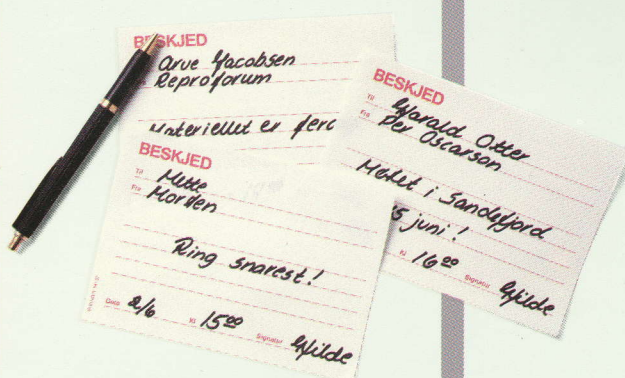 BESKJED
Arve Jacobsen
Reproforum
Materiellet er ferd
BESKJED
Til Harald Otter
Fra Per Oscarson
Møtet i Sandefjord
5 juni!
Kl 16⁰⁰ Signatur Hilde
BESKJED
Til Mette
Fra Morden
Ring snarest!
Dato 2/6 Kl 15⁰⁰ Signatur Hilde